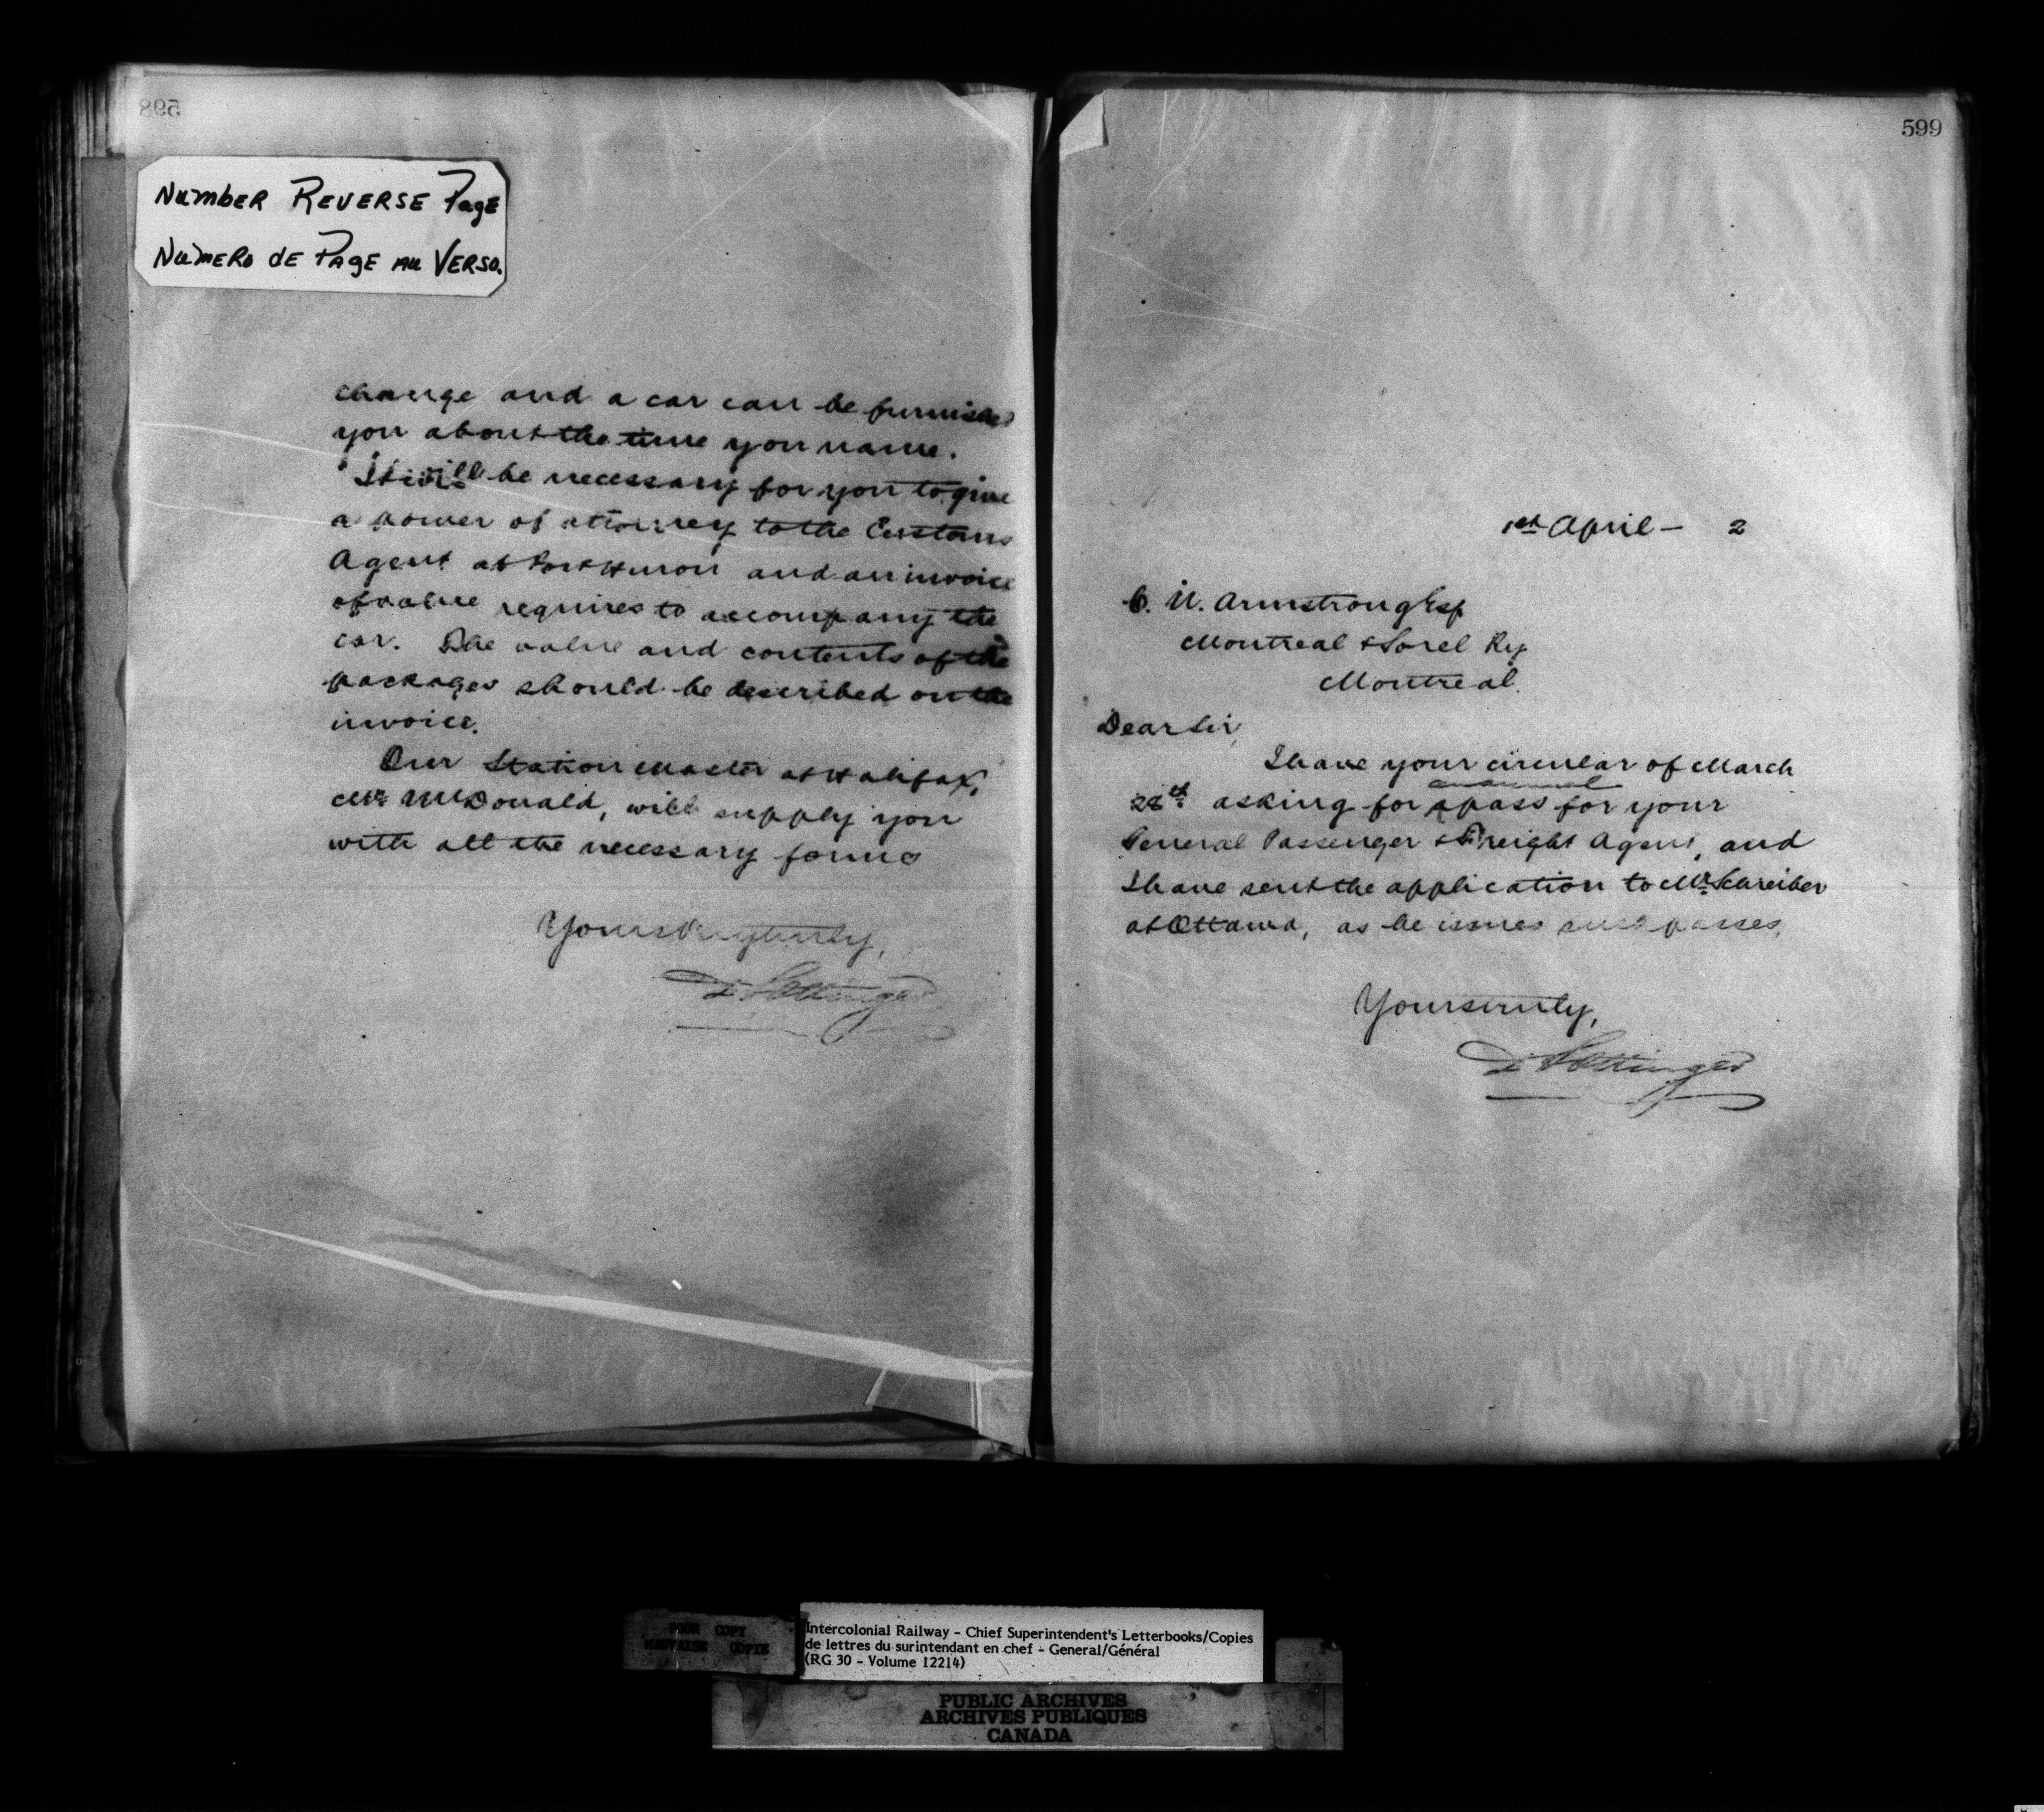 598
Number Reverse Page
Numero de Page au Verso.
change and a car can be furnished
you about the time you name.
It will be necessary for you to give
a power of attorney to the Customs
Agent at Port Huron and an invoice
of value requires to accompany the
car. The value and contents of the
packages should be described on the
invoice.
Our Station Master at Halifax,
Mr McDonald, will supply you
with all the necessary forms
Yours very truly,
D Pottinger
599
1st April — 2
C. N. Armstrong Esq
Montreal & Sorel Ry
Montreal.
Dear Sir,
I have your circular of March
annual
28th asking for a pass for your
General Passenger & Freight Agent, and
I have sent the application to Mr Schreiber
at Ottawa, as he issues such passes.
Yours truly,
D Pottinger
POOR COPY
MAUVAISE COPIE
Intercolonial Railway - Chief Superintendent's Letterbooks/Copies
de lettres du surintendant en chef - General/Général
(RG 30 - Volume 12214)
PUBLIC ARCHIVES
ARCHIVES PUBLIQUES
CANADA